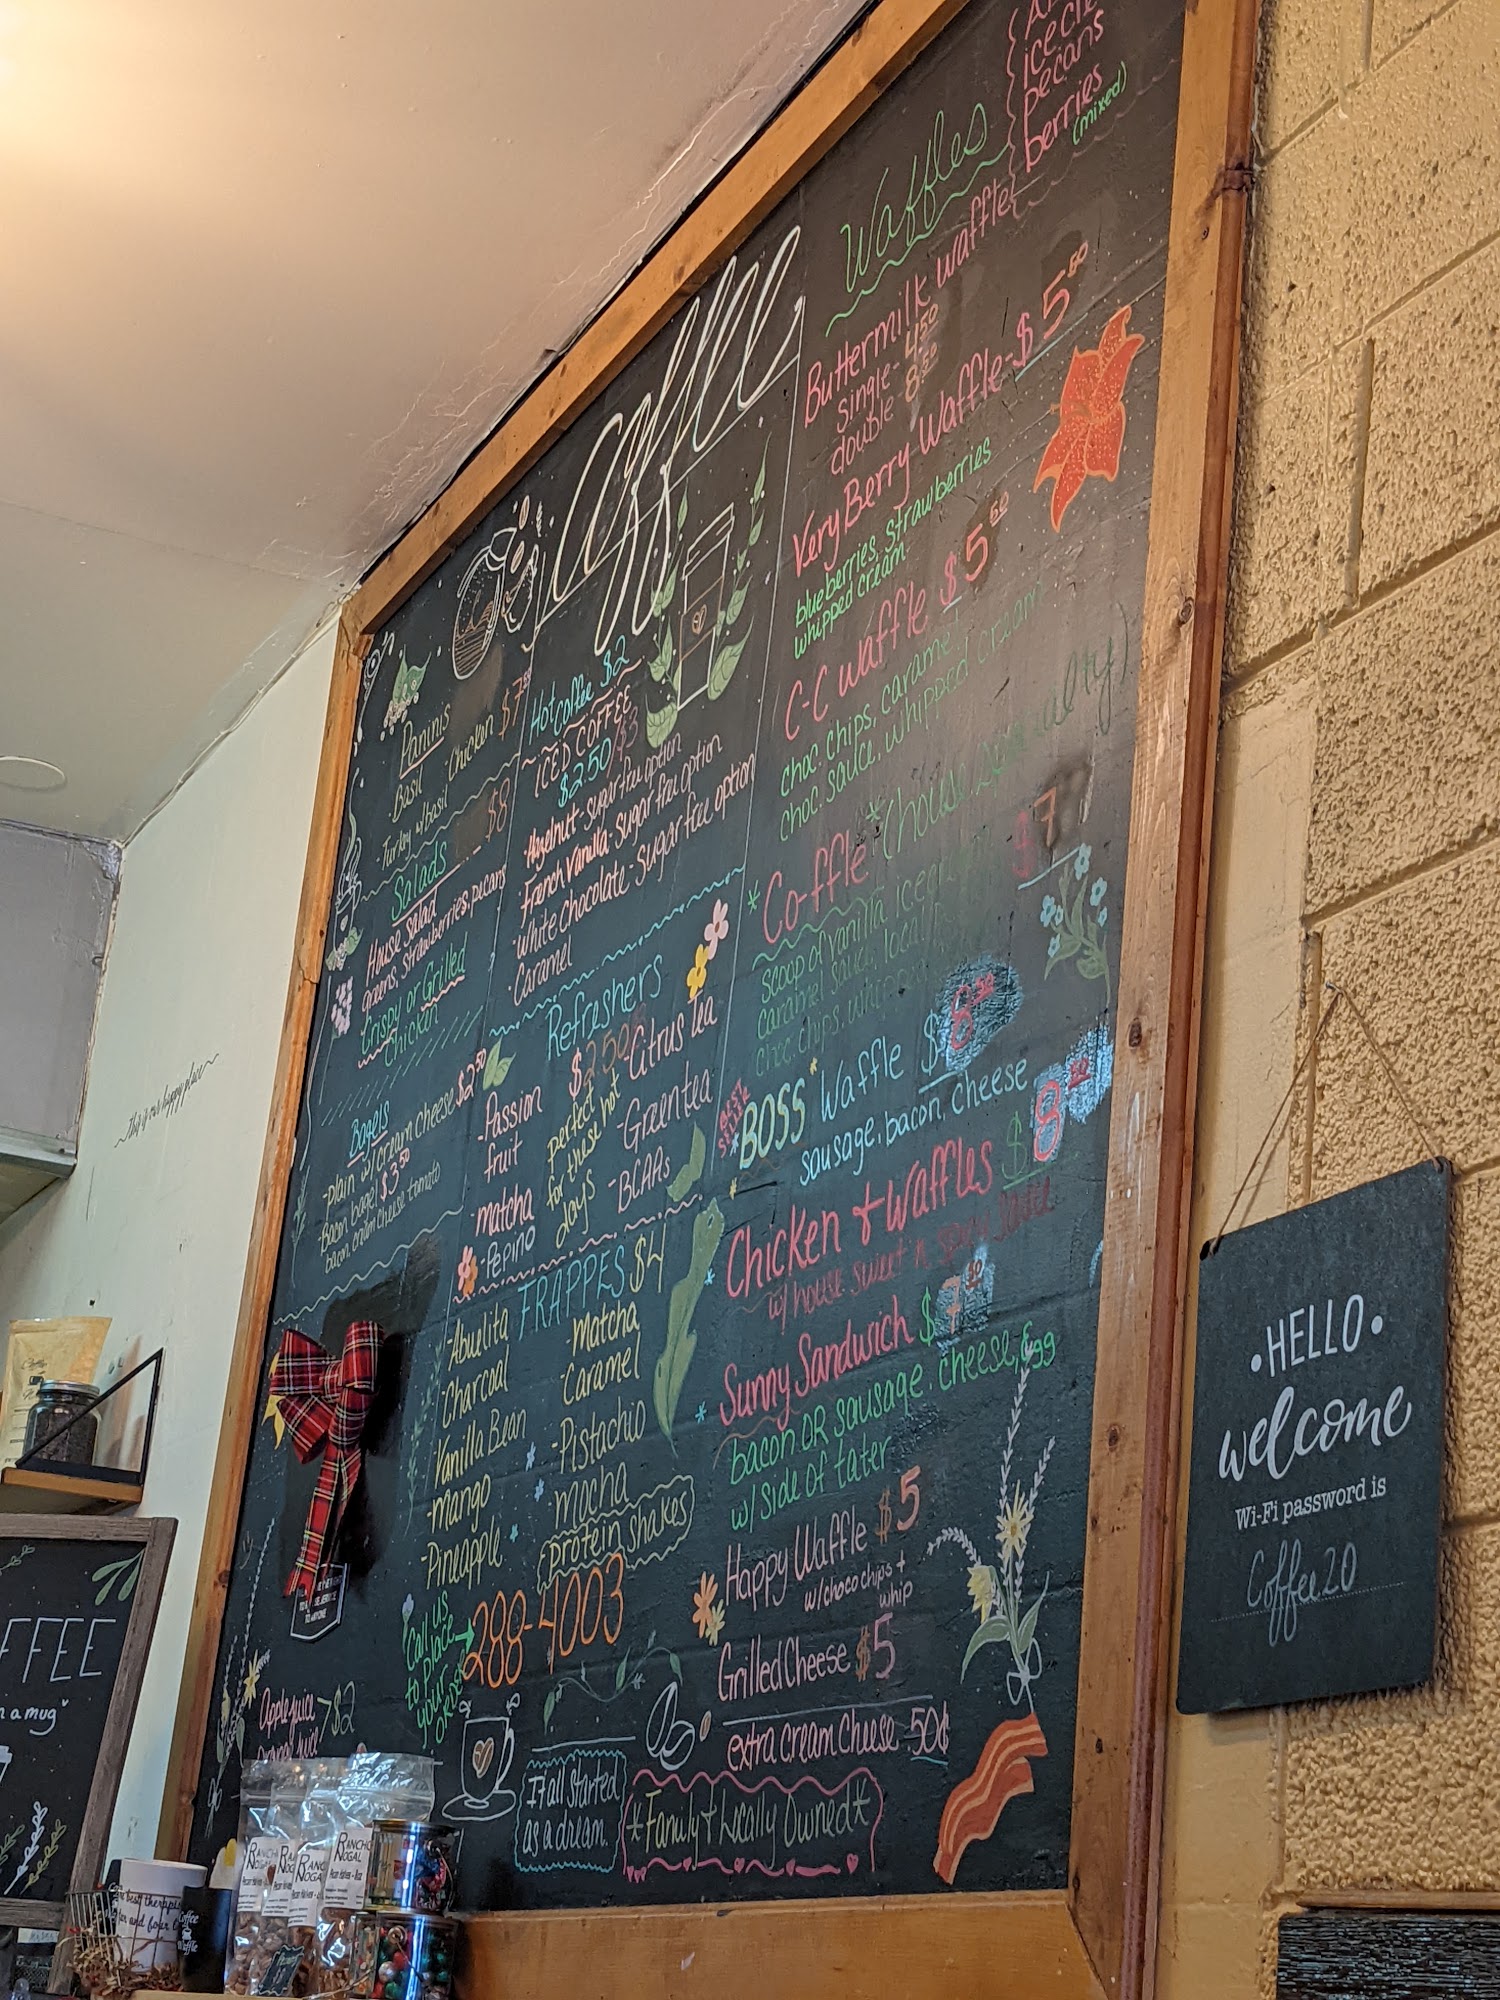 Coffee
Paninis
Basil Chicken $7.50
· Turkey w/basil $8
Salads
House Salad
greens, strawberries, pecans
Crispy or Grilled
Chicken
Bagels
-plain w/cream cheese $2.50
-Bacon bagel $3.50
bacon, cream cheese, tomato
Apple juice
>$2
Hot coffee $2
ICED COFFEE
$2.50/$3
·Hazelnut-sugar free option
·French Vanilla-sugar free option
·White chocolate-sugar free option
·Caramel
Refreshers
$2.50
-Passion
fruit
-matcha
-Pepino
perfect
for these hot
days
-Citrus tea
-Green tea
-BCAAs
FRAPPES $4
-Abuelita
-Charcoal
-Vanilla Bean
-mango
-Pineapple
-Matcha
-Caramel
-Pistachio
-mocha
protein shakes
Call us
to place
your
order
288-4003
It all started
as a dream.
*Family & Locally Owned*
Waffles
ice
pecans
berries
(mixed)
Buttermilk waffle
single- 4.50
double 8.50
Very Berry Waffle-$5.50
blueberries, strawberries
whipped cream
C-C Waffle $5.50
choc. chips, caramel
choc. sauce, whipped cream
*Co-ffle *(house specialty)
$7
scoop of vanilla ice cream
caramel sauce, local
choc. chips, whipped
BEST
SELLER
*BOSS* Waffle $8.50
sausage, bacon, cheese
Chicken & Waffles $8.50
w/ house sweet n spicy sauce
*Sunny Sandwich $7.50
bacon OR sausage, cheese, Egg
w/ side of tater
Happy Waffle $5
w/choco chips +
whip
Grilled Cheese $5
extra cream cheese 50¢
this is our happy place
FFEE
n a mug
RANCHO
NOGAL
·HELLO·
welcome
Wi-Fi password is
Coffee20